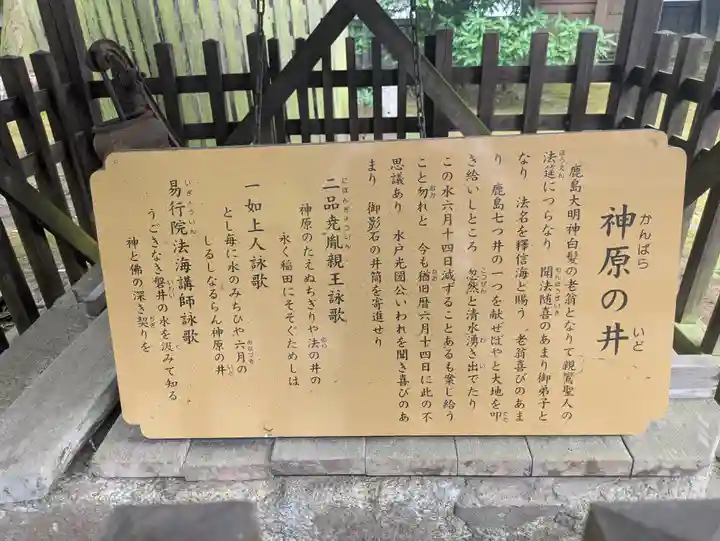 神原の井
かんばら いど
鹿島大明神白髪の老翁となりて親鸞聖人の
法筵につらなり 聞法随喜のあまり御弟子と
なり 法名を釋信海と賜う 老翁喜びのあま
り 鹿島七つ井の一つを献ぜばやと大地を叩
き給いしところ 忽然と清水湧き出でたり
この水六月十四日減ずることあるも案じ給う
こと勿れと 今も猶旧暦六月十四日に此の不
思議あり 水戸光圀公いわれを聞き喜びのあ
まり 御影石の井筒を寄進せり
二品尭胤親王詠歌
神原のたえぬちぎりや法の井の
永く稲田にそそぐためしは
一如上人詠歌
とし毎に水のみちひや六月の
しるしなるらん神原の井
易行院法海講師詠歌
うごきなき磐井の水を汲みて知る
神と佛の深き契りを